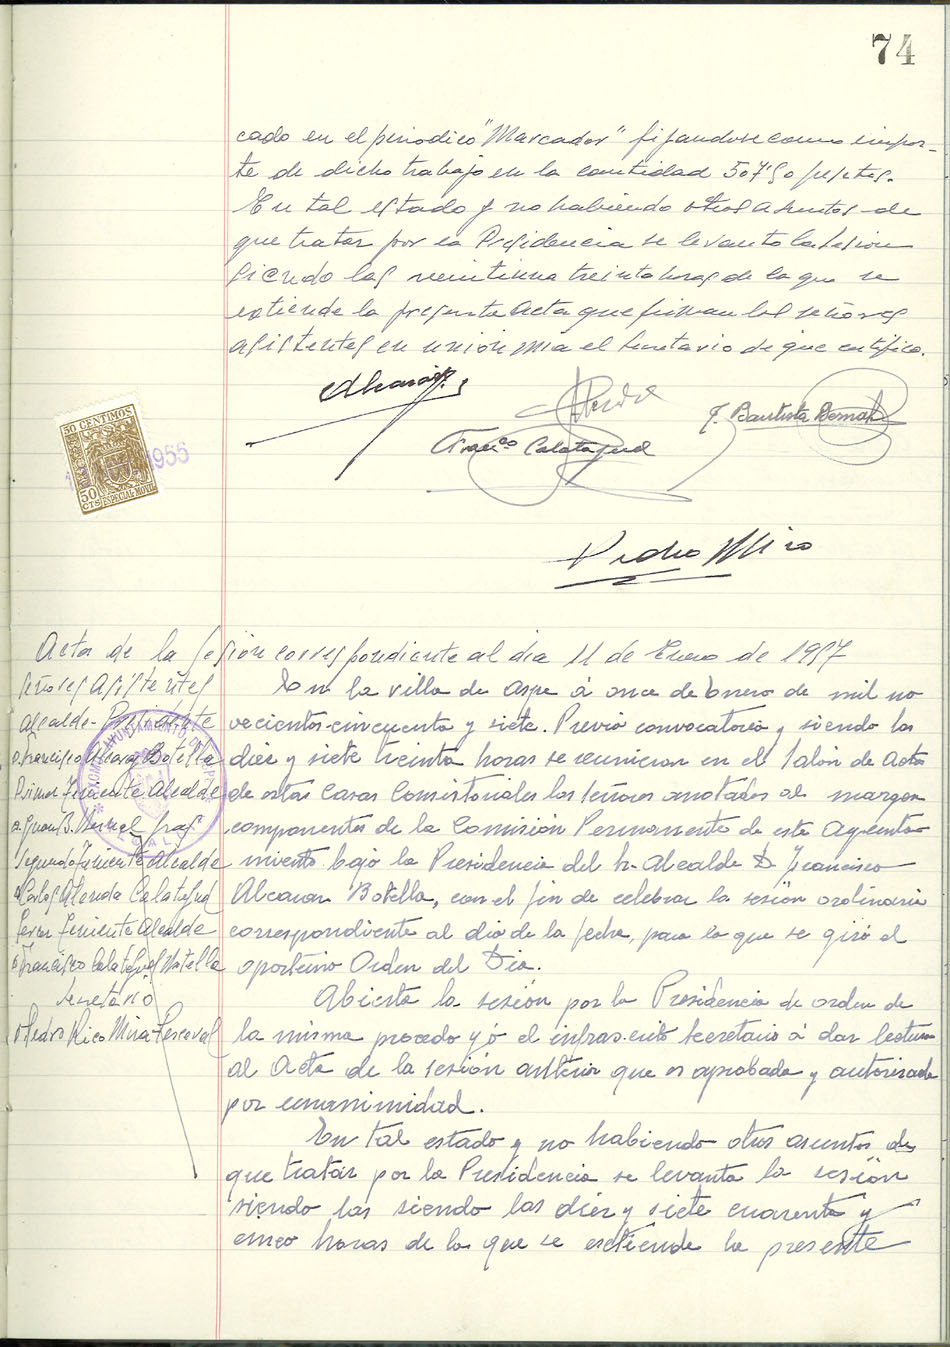 74
cado en el periodico "Marcador" fijandose como impor-
te de dicho trabajo en la cantidad 507'50 pesetas.
En tal estado y no habiendo otros asuntos de
que tratar por la Presidencia se levanto la sesion
siendo las veintiuna treinta horas de la que se
extiende la presente acta que firman los señores
asistentes en union mia el Secretario de que certifico.
J. Bautista Bernal
Franco Calatayud
50 CENTIMOS
1955
50
CTS ESPECIAL MOVIL
Pedro Miro
Acta de la Sesión correspondiente al dia 11 de Enero de 1957
Señores Asistentes
Alcalde-Presidente
D. Francisco Alcaraz Botella
Primer Teniente Alcalde
D. Juan B. Bernal
Segundo Teniente Alcalde
D. Carlos Alenda Calatayud
Tercer Teniente Alcalde
D. Francisco Calatayud Botella
Secretario
D. Pedro Rico Mira-Perceval
En la villa de Aspe á once de Enero de mil no
vecientos cincuenta y siete. Previo convocatoria y siendo las
diez y siete treinta horas se reunieron en el Salón de Actos
de estas Casas Consistoriales los señores anotados al margen
componentes de la Comisión Permanente de este Ayunta-
miento bajo la Presidencia del Sr. Alcalde D. Francisco
Alcaraz Botella, con el fin de celebrar la sesión ordinaria
correspondiente al dia de la fecha, para lo que se giró el
oportuno Orden del Dia.
Abierta la sesión por la Presidencia de orden de
la misma procedo yó el infrascrito Secretario á dar lectura
al Acta de la sesión anterior que es aprobada y autorizada
por unanimidad.
En tal estado y no habiendo otros asuntos de
que tratar por la Presidencia se levanta la sesión
siendo las siendo las diez y siete cuarenta y
cinco horas de la que se extiende la presente